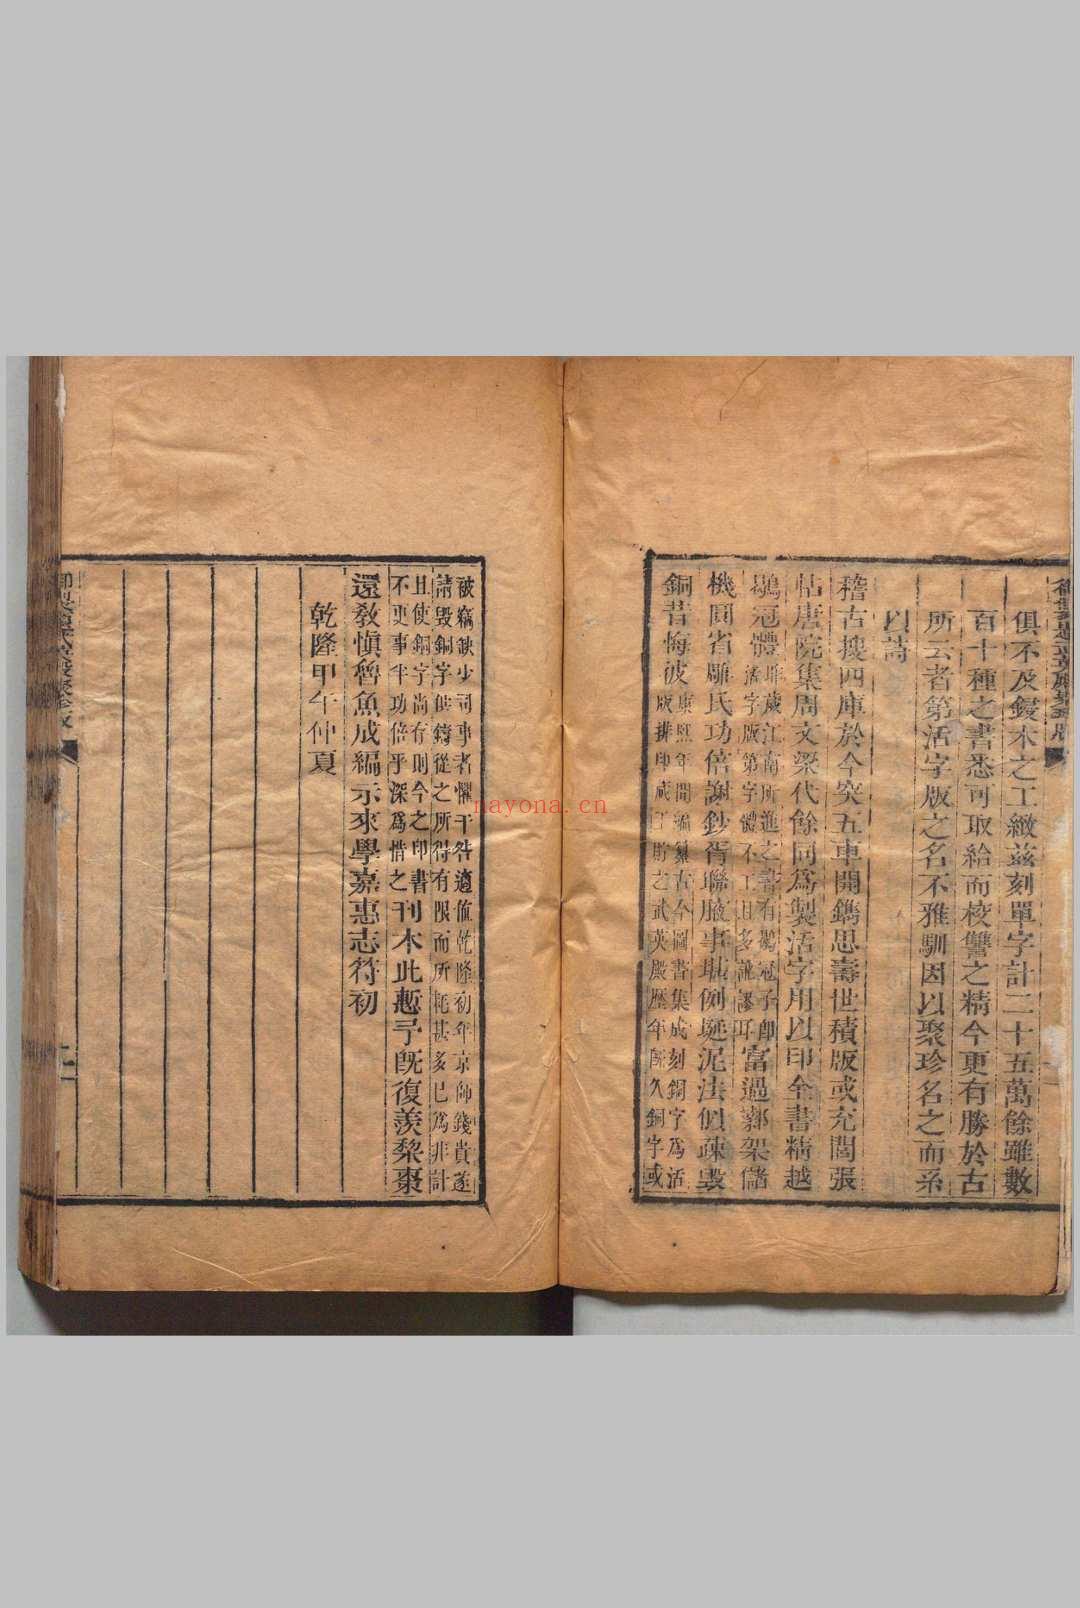 俱不及鋟木之工緻茲刻單字計二十五萬餘雖數
百十種之書悉可取給而校讐之精今更有勝於古
所云者第活字版之名不雅馴因以聚珍名之而系
以詩
稽古搜四庫於今突五車開鐫思壽世積版或充閭張
帖唐院集周文梁代餘同為製活字用以印全書精越
鶡冠體
活字版第字體不工且多訛謬耳富過鄴架儲
機圓省雕氏功倍謝鈔胥聯腋事堪例埏泥法似疎毀
銅昔悔彼
康熙年間編纂古今圖書集成刻銅字為活
版排印蕆工貯之武英殿歷年旣久銅字或
被竊缺少司事者懼干咎適值乾隆初年京師錢貴遂
請毀銅字供鑄從之所得有限而所耗甚多已為非計
且使銅字尚有則今之印書
不更事半功倍乎深為惜之
刊木此慙予旣復羨棃棗
還敎慎魯魚成編示來學嘉惠志符初
乾隆甲午仲夏
nayona.cn